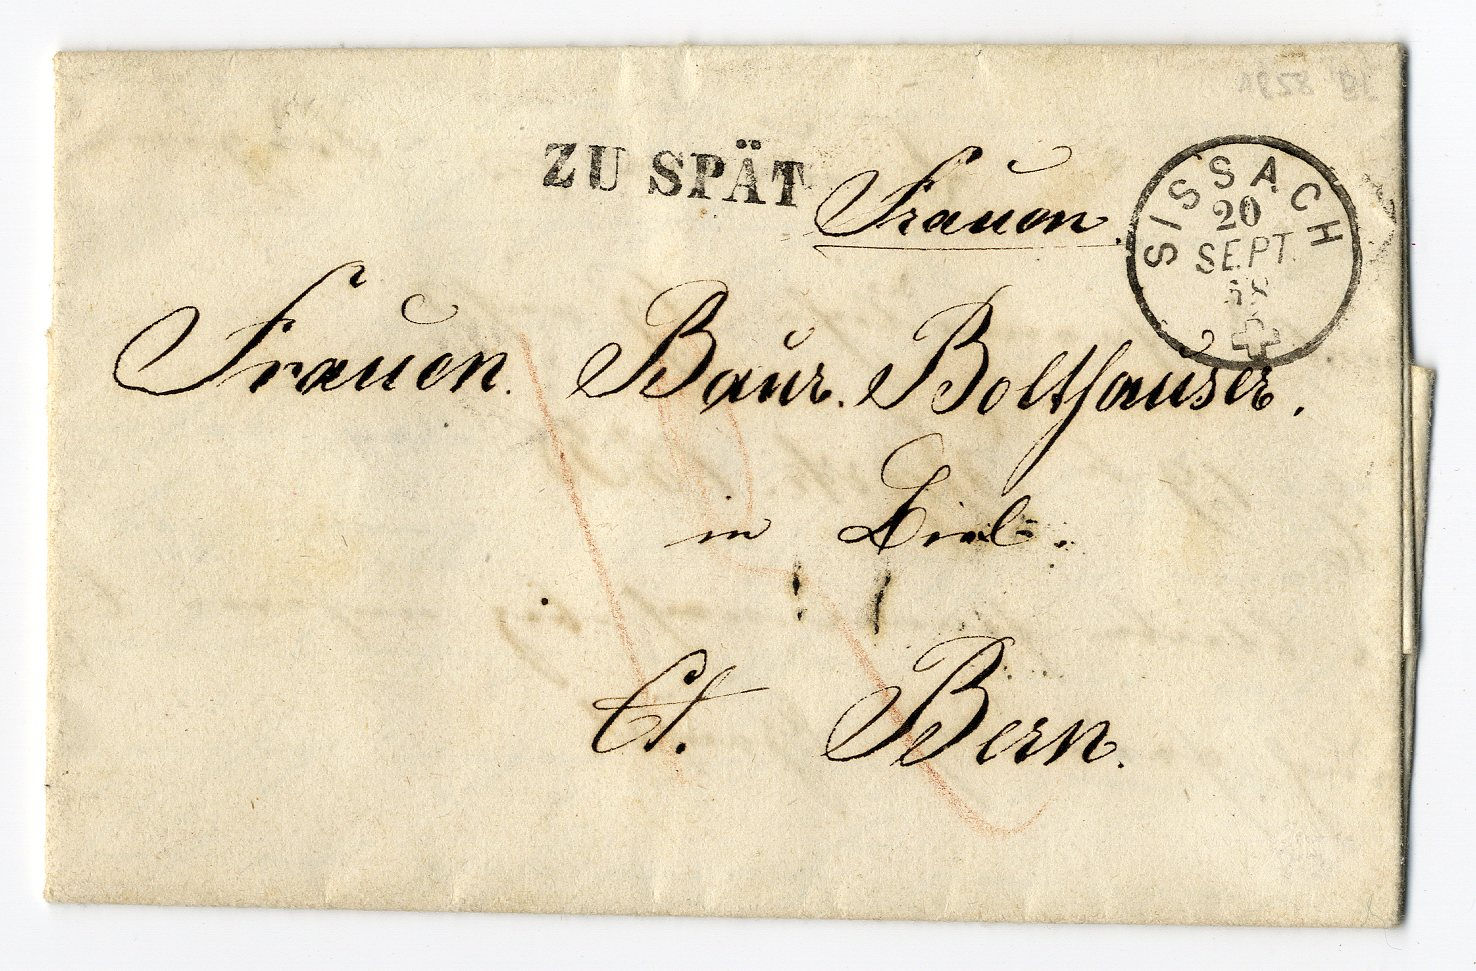 ZU SPÄT
Frauen.
SISSACH
20
SEPT.
68
Frauen. Baur. Bolthauser.
in Biel.
Ct. Bern.